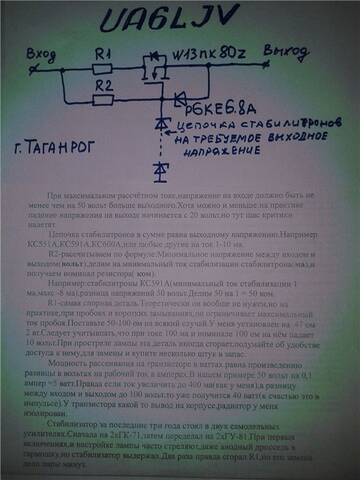 UA6LJV
Вход
R1
W13nk80z
Выход
R2
P6KE6.8A
ЦЕПОЧКА СТАБИЛИТРОНОВ
НА ТРЕБУЕМОЕ ВЫХОДНОЕ
НАПРЯЖЕНИЕ
г. ТАГАНРОГ
При максимальном рассчётном токе,напряжение на входе должно быть не
менее чем на 50 вольт больше выходного.Хотя можно и меньше,на практике
падение напряжения на выходе начинается с 20 вольт,но тут щас критики
налетят.
Цепочка стабилитронов в сумме равна выходному напряжению.Например
КС551А,КС591А,КС600А,или любые другие на ток 1-10 ма.
R2-рассчитываем по формуле.Минимальное напряжение между входом и
выходом(вольт),делим на минимальный ток стабилизации стабилитрона(ма),и
получаем номинал резистора( ком).
Например:стабилитроны КС591А(минимальный ток стабилизации 1
ма,макс -8 ма),разница напряжений 50 вольт.Делим 50 на 1 = 50 ком.
R1-самая спорная деталь.Теоретически он вообще не нужен,но на
практике,при пробоях и коротких замыканиях,он ограничивает максимальный
ток пробоя.Поставьте 50-100 ом на всякий случай.У меня установлен на 47 ом
2 вт.Следует учитывать,что при токе 100 ма и номинале 100 ом на нём падает
10 вольт.При простреле лампы эта деталь иногда сгорает,подумайте об удобстве
доступа к нему,для замены и купите несколько штук в запас.
Мощность рассеивания на транзисторе в ваттах равна произведению
разницы в вольтах на рабочий ток в амперах.В нашем примере 50 вольт на 0,1
ампер =5 ватт.Правда если ток увеличить до 400 ма(как у меня),а разницу
между входом и выходом до 100 вольт,то уже получится 40 ватт(к счастью это в
импульсе).У транзистора какой то вывод на корпусе,радиатор у меня
изолирован.
Стабилизатор за последние три года стоял в двух самодельных
усилителях.Сначала на 2хГК-71,затем переделал на 2хГУ-81.При первых
включениях,и настройке лампы часто стреляют,даже анодный дроссель в
гармошку,но стабилизатор выдержал.Два раза правда сгорал R1,но его замена
дело пары минут.